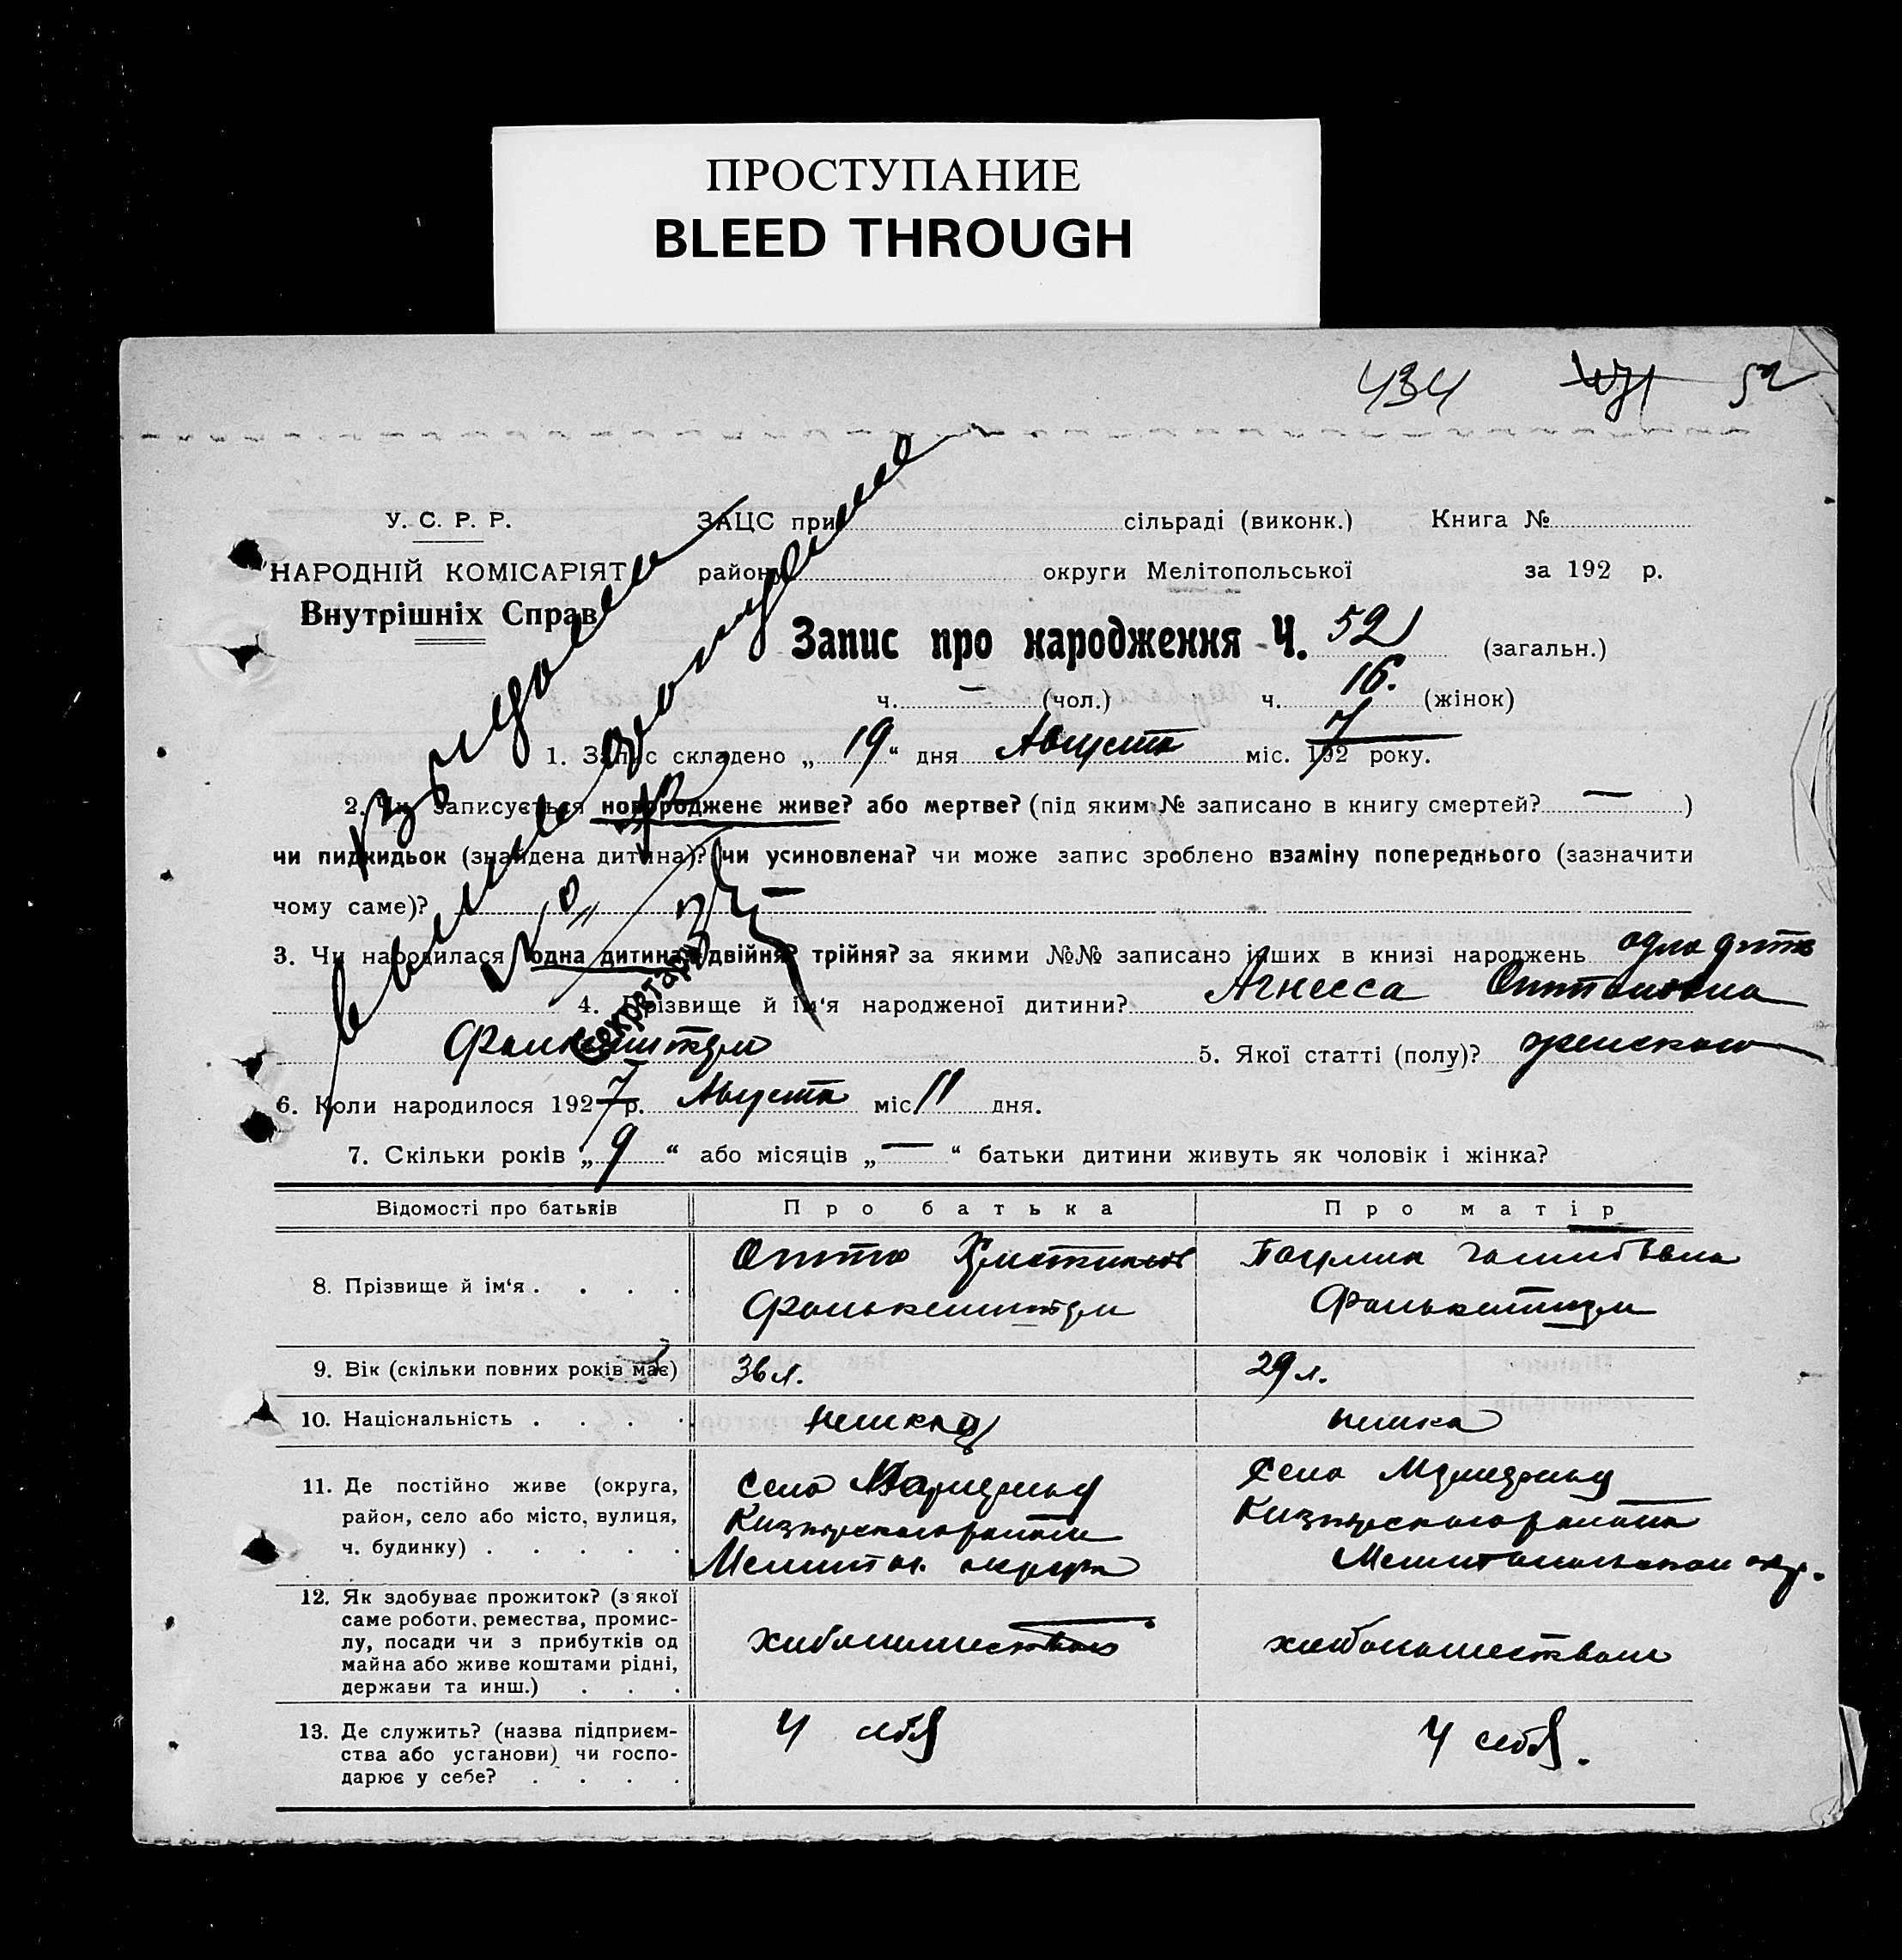 ПРОСТУПАНИЕ
BLEED THROUGH
434 471 52
У. С. Р. Р. ЗАЦС при сільраді (виконк.) Книга №
НАРОДНІЙ КОМІСАРІЯТ району округи Мелітопольської за 192 р.
Внутрішніх Справ
Запис про народження Ч. 52 (загальн.)
ч. — (чол.) ч. 16. (жінок)
1. Запис складено „ 19 “ дня Августа міс. 1927 року.
2. Чи записується новороджене живе? або мертве? (під яким № записано в книгу смертей? — )
чи пидкидьок (знайдена дитина)? чи усиновлена? чи може запис зроблено взаміну попереднього (зазначити
чому саме)? —
3. Чи народилася одна дитина, двійня? трійня? за якими №№ записано інших в книзі народжень одно дитя
4. Прізвище й ім‘я народженої дитини? Агнесса Оттовна
Секретарь
5. Якої статті (полу)? женскаго
6. Коли народилося 1927 р. Августа міс. 11 дня.
7. Скільки років „ 9 “ або місяців „ — “ батьки дитини живуть як чоловік і жінка?
Відомості про батьків Про батька Про матір
8. Прізвище й ім‘я . . . . Отто
Фалькенштерн Фалькенштерн
9. Вік (скільки повних років має) 36 л. 29 л.
10. Національність . . . . немец немка
11. Де постійно живе (округа, село село
район, село або місто, вулиця, района района
ч. будинку) . . . . . Мелитоп. округа Мелитопольской окр.
12. Як здобуває прожиток? (з якої
саме роботи, ремества, промис-
лу, посади чи з прибутків од хлебопашеством хлебопашеством
майна або живе коштами рідні,
держави та инш.) . . .
13. Де служить? (назва підприєм- У себя У себя.
ства або установи) чи госпо-
дарює у себе? . . . .